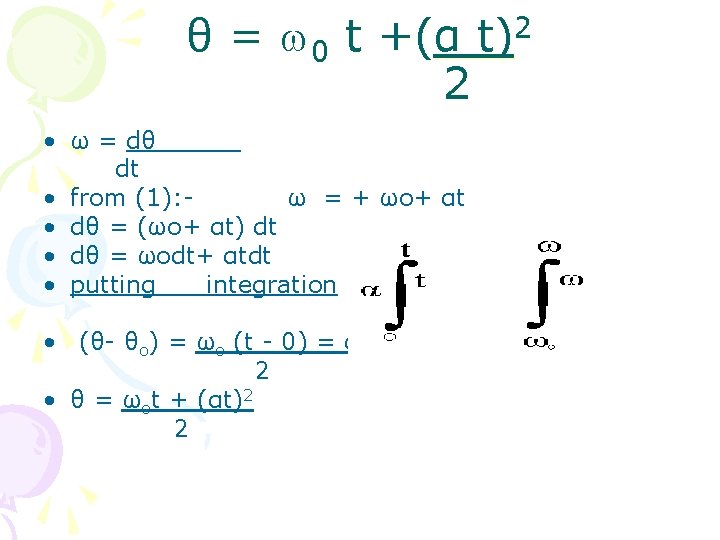 θ = ω0 t +(α t)2
2
• ω = dθ
dt
• from (1): - ω = + ωo+ αt
• dθ = (ωo+ αt) dt
• dθ = ωodt+ αtdt
• putting integration α ∫ t t o ∫ ω ω ωo
• (θ- θo) = ωo (t - 0) =
2
• θ = ωot + (αt)2
2